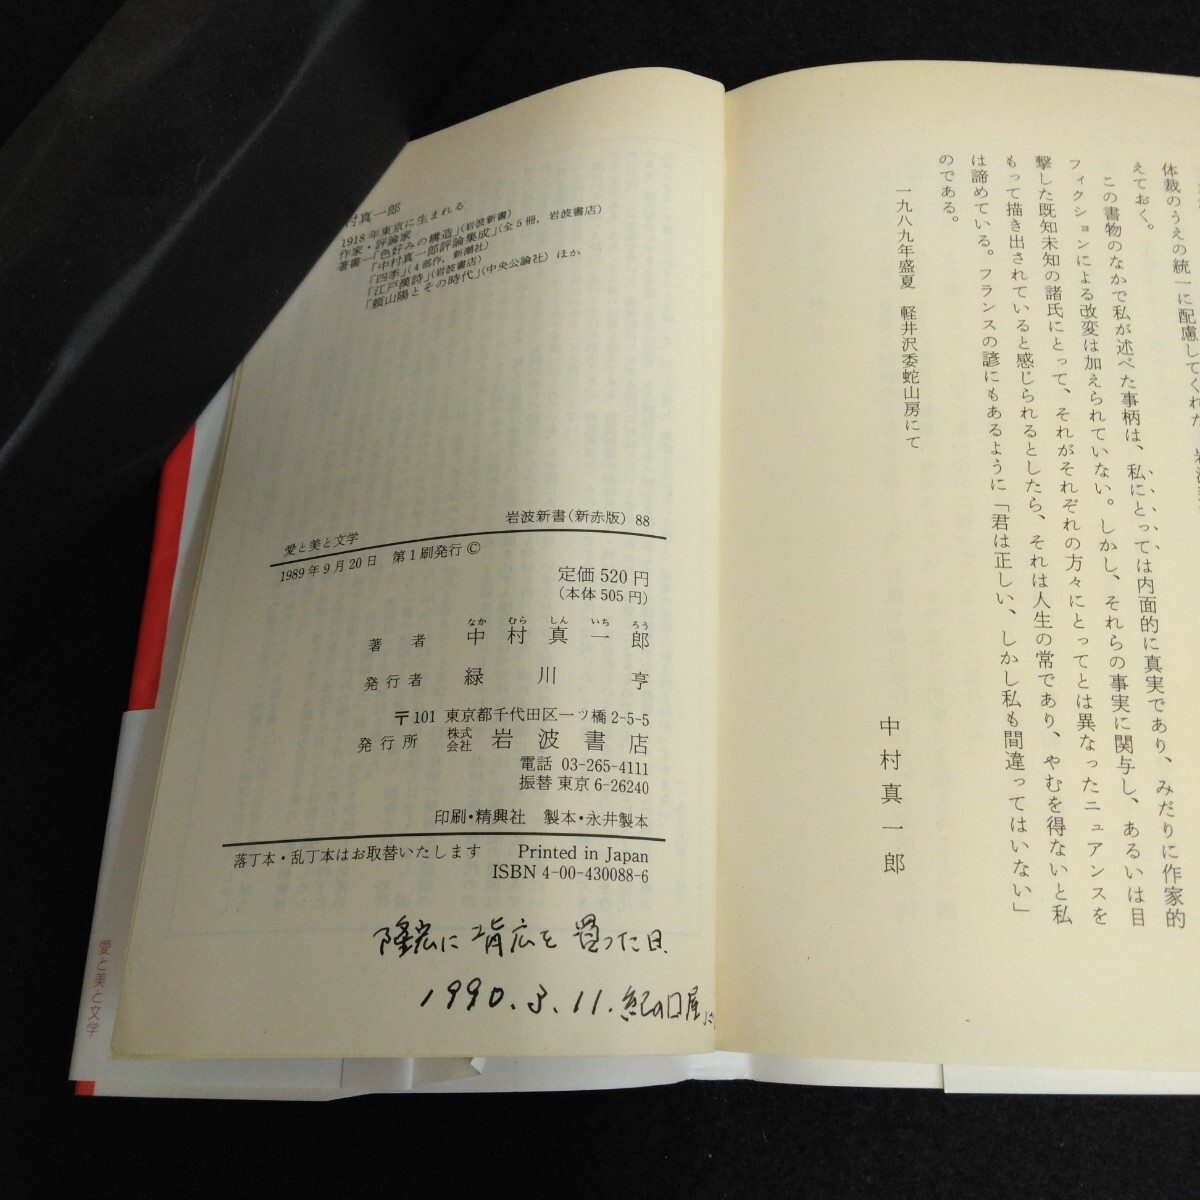 体裁のうえの統一に配慮してくれた
えておく。
この書物のなかで私が述べた事柄は、私にとっては内面的に真実であり、みだりに作家的
フィクションによる改変は加えられていない。しかし、それらの事実に関与し、あるいは目
撃した既知未知の諸氏にとって、それがそれぞれの方々にとってとは異なったニュアンスを
もって描き出されていると感じられるとしたら、それは人生の常であり、やむを得ないと私
は諦めている。フランスの諺にもあるように「君は正しい、しかし私も間違ってはいない」
のである。
一九八九年盛夏 軽井沢委蛇山房にて
中村真一郎
村真一郎
1918年東京に生まれる
作家・評論家
著書―「色好みの構造」(岩波新書)
「中村真一郎評論集成」(全5冊, 岩波書店)
「四季」(4部作, 新潮社)
「江戸漢詩」(岩波書店)
「頼山陽とその時代」(中央公論社) ほか
岩波新書(新赤版) 88
愛と美と文学
1989年9月20日 第1刷発行 ©
定価 520円
(本体 505円)
なか むら しん いち ろう
著者 中村真一郎
発行者 緑川亨
〒101 東京都千代田区一ツ橋2-5-5
発行所 株式会社 岩波書店
電話 03-265-4111
振替 東京 6-26240
印刷・精興社 製本・永井製本
落丁本・乱丁本はお取替いたします Printed in Japan
ISBN 4-00-430088-6
隆宏に背広を買った日
1990.3.11.紀の口屋
愛と美と文学